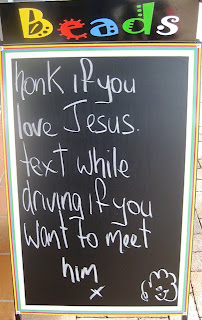 Beads
honk if you
love Jesus.
text while
driving if you
want to meet
him
x